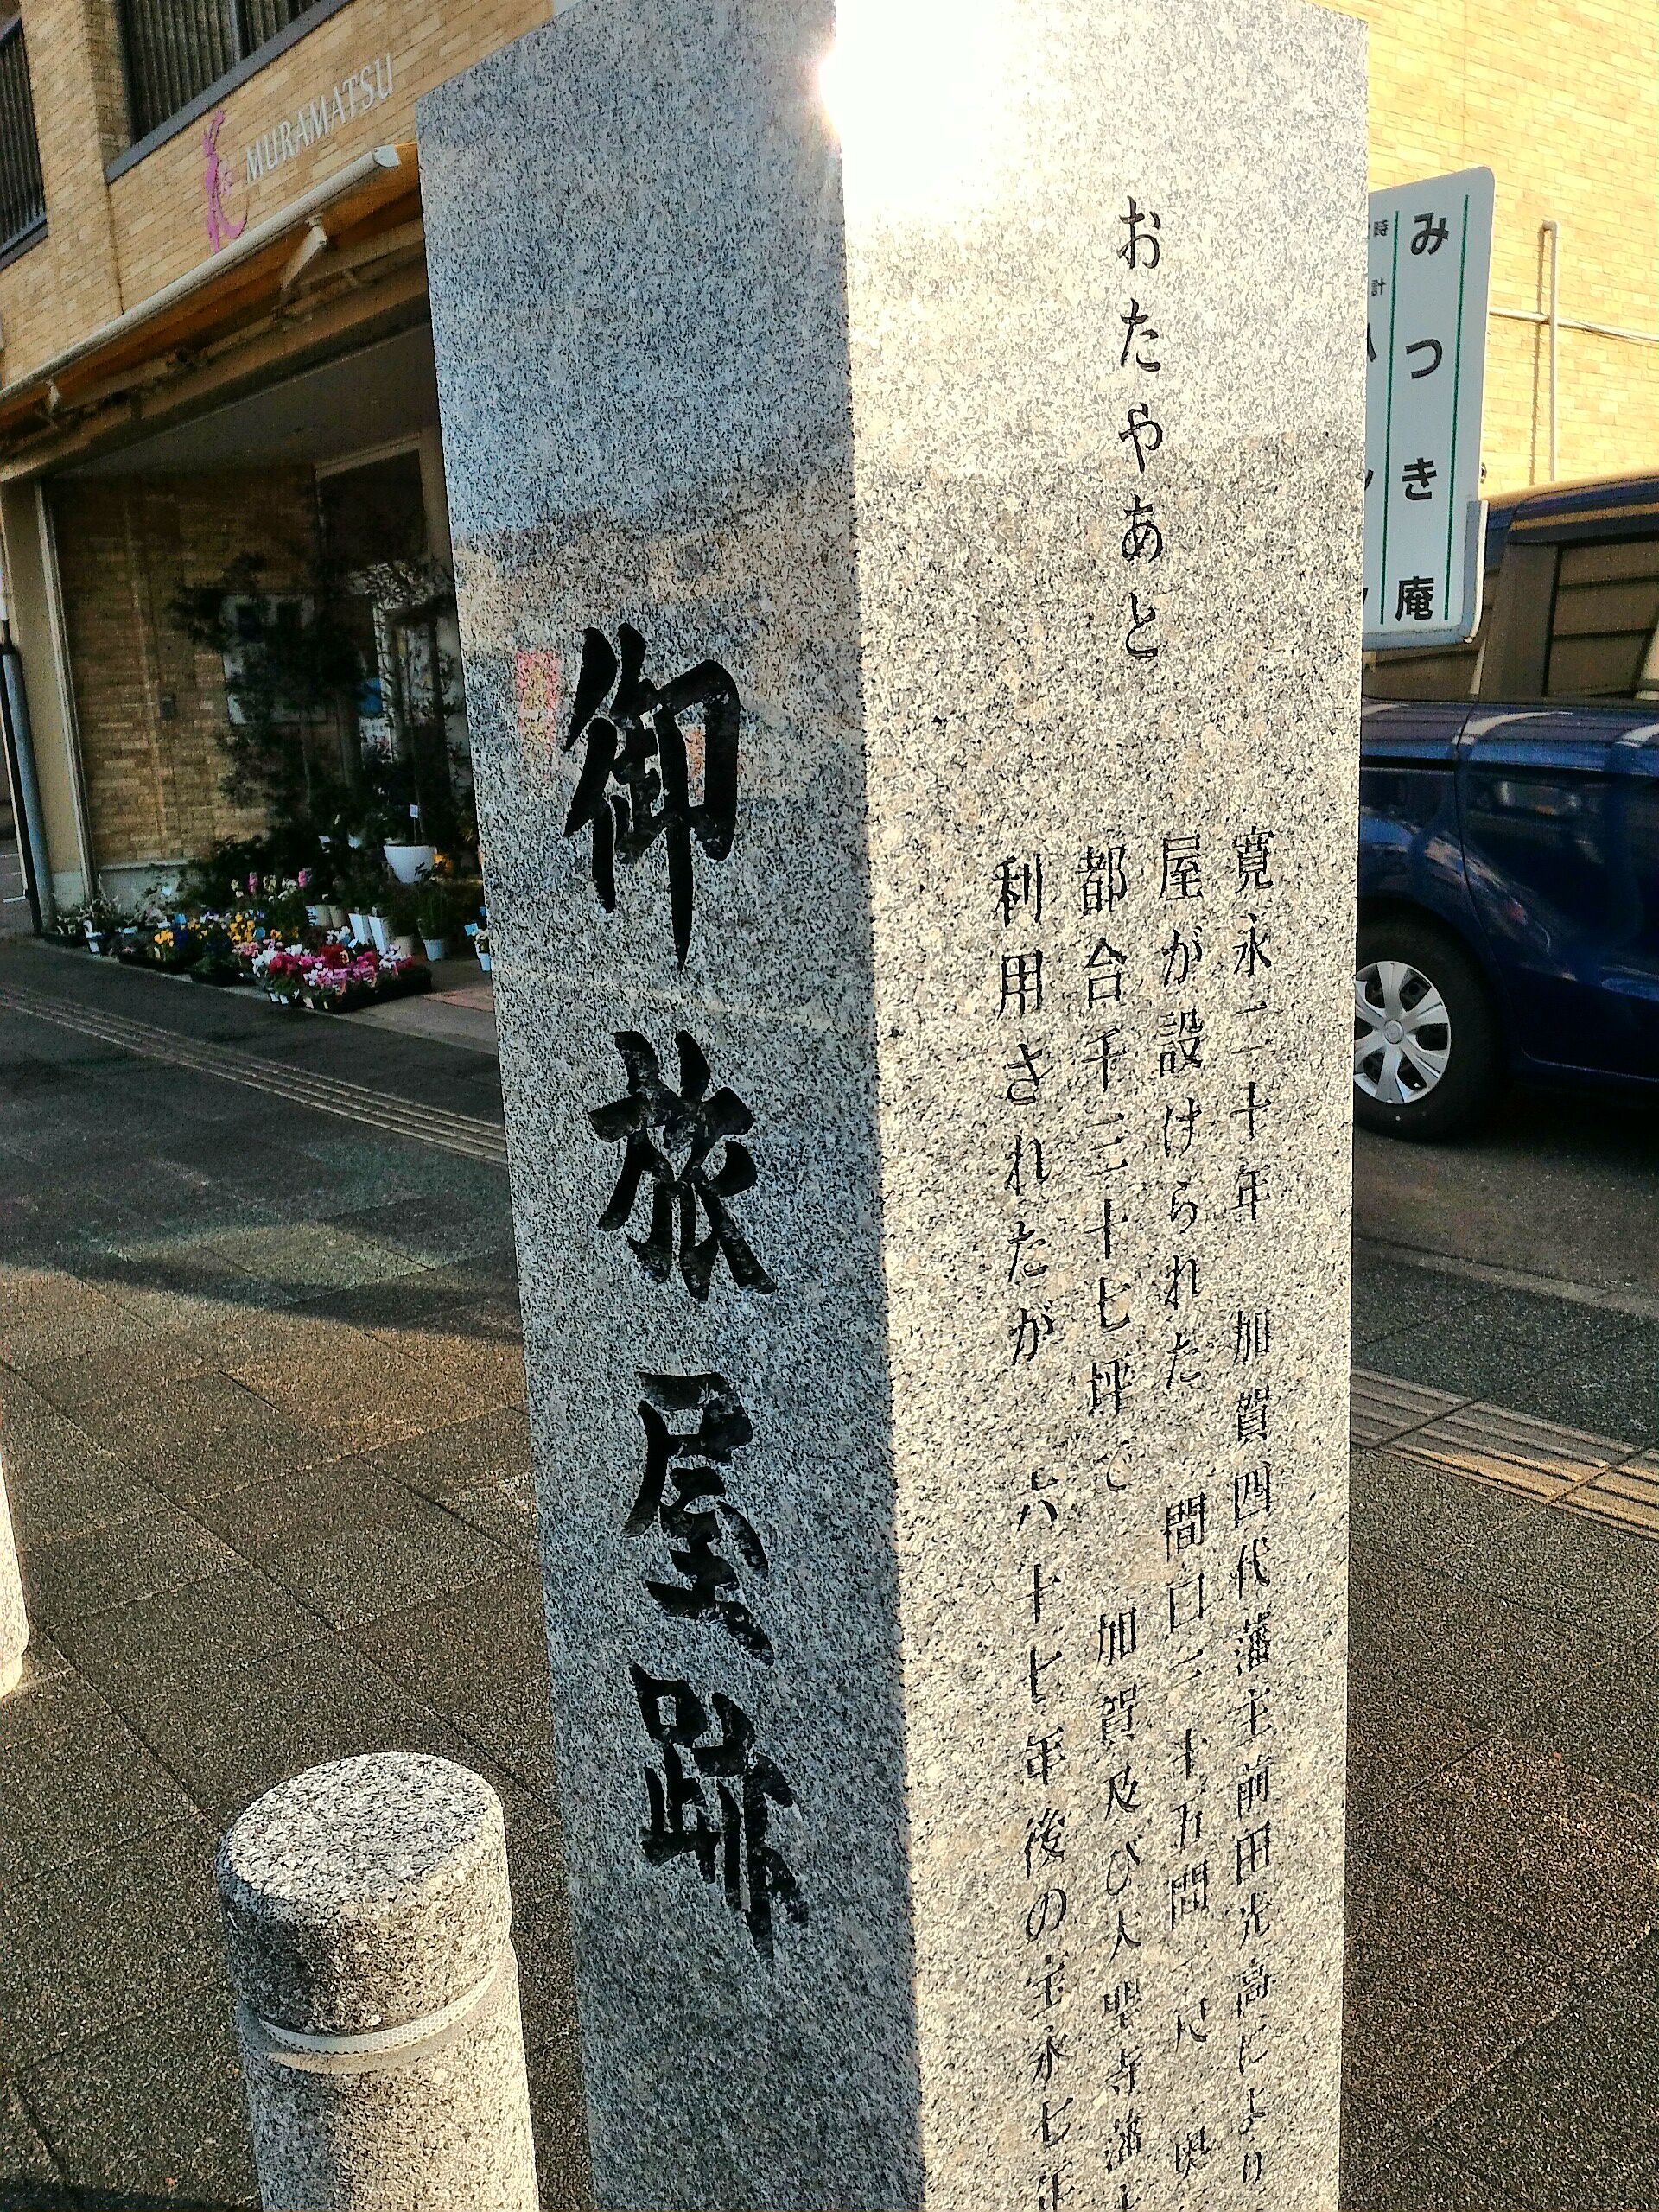 MURAMATSU
御旅屋跡
おたやあと
寛永二十年 加賀四代藩主前田光高により
屋が設けられた 間口二十五間に 奥
都合千三十七坪で 加賀及び大聖寺藩主
利用されたが 六十七年後の宝永七年
みつき庵
時計